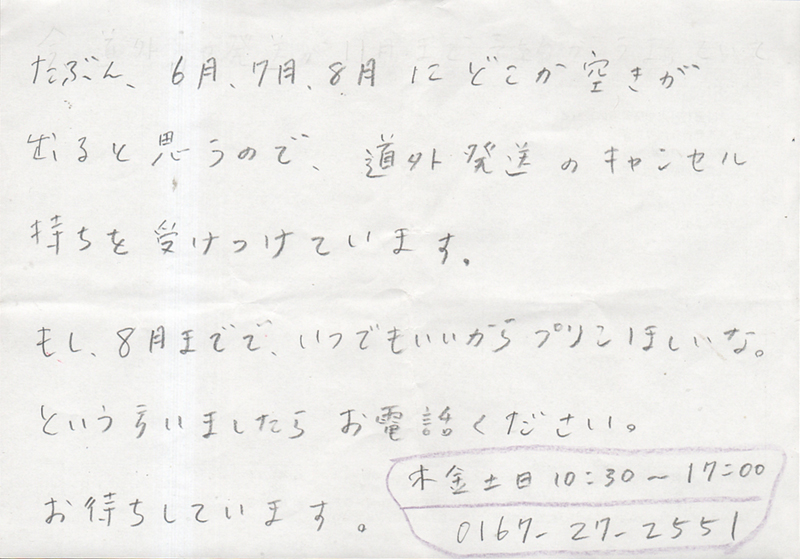 たぶん、6月、7月、8月 にどこか空きが
出ると思うので、道外発送のキャンセル
待ちを受けつけています。
もし、8月までで、いつでもいいからプリンほしいな。
という方いましたらお電話ください。
お待ちしています。
木金土日 10:30〜17:00
0167-27-2551